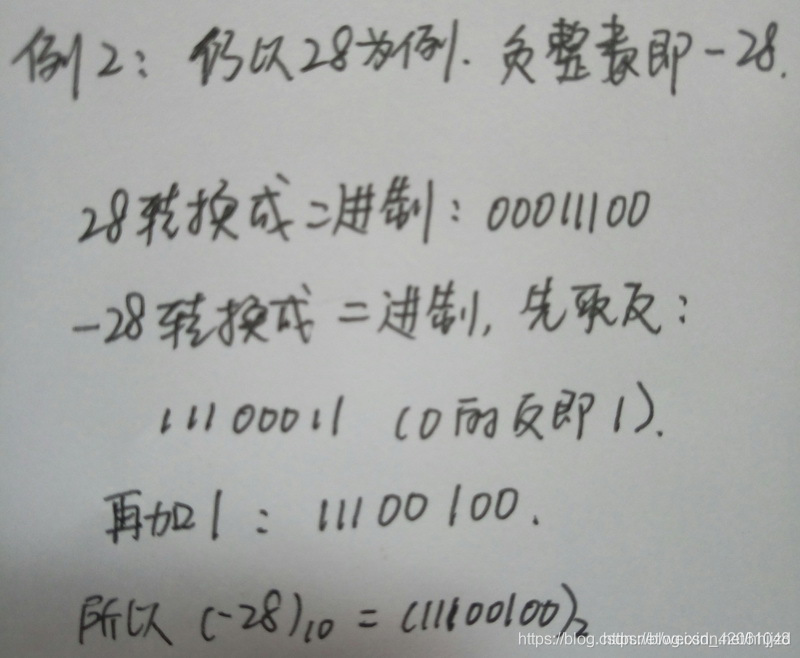 例2：仍以28为例.负整数即-28.
28转换成二进制：00011100
-28转换成二进制,先取反：
11100011 (0的反即1).
再加1：11100100.
所以(-28)10=(11100100)2